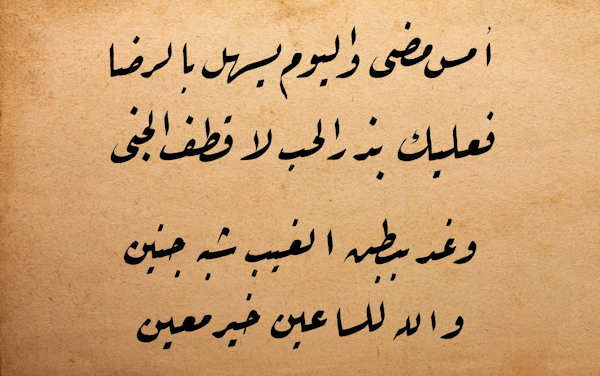 أمس مضى واليوم يسهل بالرضا
فعليك بذر الحب لا قطف الجنى
وغد ببطن الغيب شبه جنين
والله للساعين خير معين